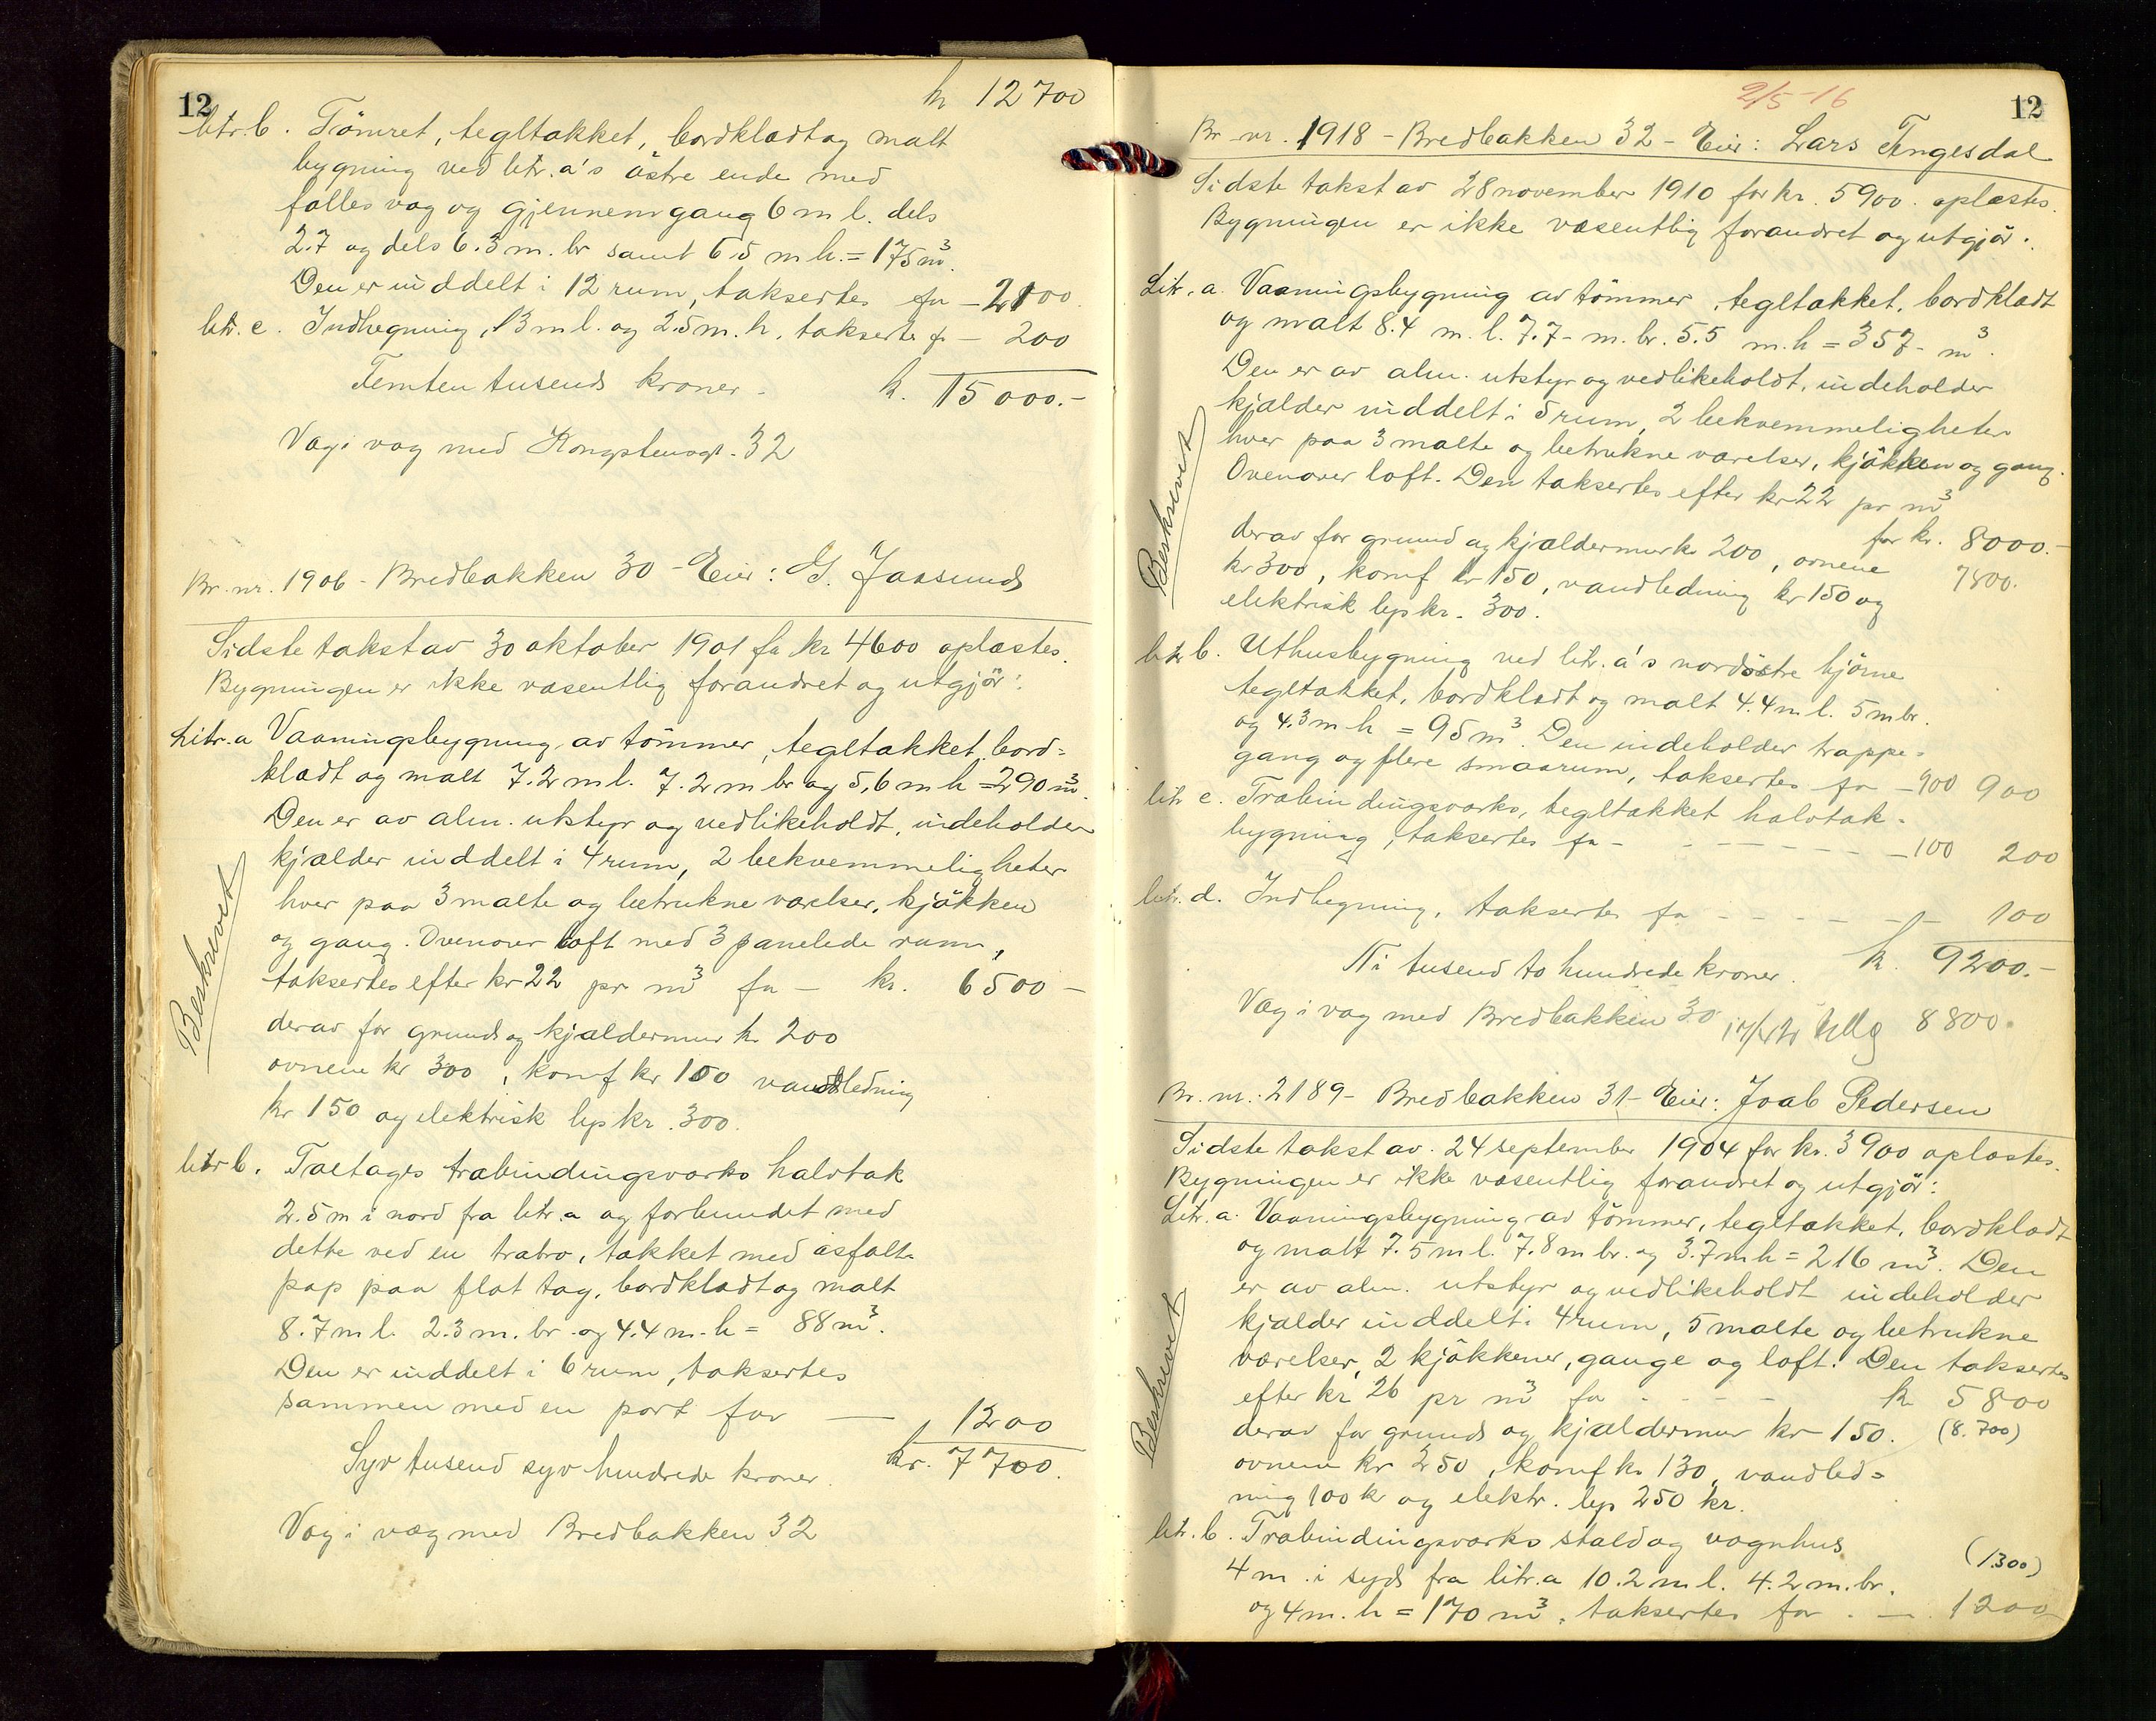 12
kr 12700
litr b. Tömret, tegltakket, bordklædt og malt
bygning ved litr. a's östre ende med
fælles væg og gjennemgang 6 m l. dels
2.7 og dels 6.3 m. br samt 6.5 m h. = 175 m³.
Den er inddelt i 12 rum, taksertes for — 2100.
litr. c. Indhegning, 13 m l. og 2.5 m. h. taksertes fr — 200
Femten tusend kroner. kr. 15000.-
Væg i væg med Kongstensgt. 32
Br. nr. 1906 - Bredbakken 30 - Eier: G. Jaasund
Sidste takst av 30 oktober 1901 for kr 4600 oplæstes.
Bygningen er ikke væsentlig forandret og utgjör:
Litr. a Vaaningsbygning av tömmer, tegltakket, bord=
klædt og malt 7.2 m l. 7.2 m br og 5,6 m h = 290 m³.
Den er av alm. utstyr og vedlikeholdt, indeholder
kjælder inddelt i 4 rum, 2 bekvemmeligheter
hver paa 3 malte og betrukne værelser, kjökken
og gang. Ovenover loft med 3 panelede rum,
taksertes efter kr 22 pr m³ for — kr. 6500 —
derav for grund og kjældermur kr 200
ovnene kr 300, komf kr 100 vandledning
kr 150 og elektrisk lys kr. 300.
Beskrevet
litr b. Toetages træbindingsverks halvtak
2.5 m i nord fra litr. a og forbundet med
dette ved en træbro, takket med asfalt-
pap paa flat tag, bordklædt og malt
8.7 m l. 2.3 m. br. og 4.4 m. h = 88 m³.
Den er inddelt i 6 rum, taksertes
sammen med en port for — 1200
Syv tusend syv hundrede kroner. kr. 7700.
Væg i væg med Bredbakken 32
2/5-16
12
Br. nr. 1918 - Bredbakken 32 - Eier: Lars Tengesdal
Sidste takst av 28 november 1910 for kr. 5900. oplæstes.
Bygningen er ikke væsentlig forandret og utgjör:
Litr. a. Vaaningsbygning av tömmer, tegltakket, bordklædt
og malt 8.4 m. l. 7.7 - m. br. 5.5 m. h = 357 - m³.
Den er av alm. utstyr og vedlikeholdt, indeholder
kjælder inddelt i 5 rum, 2 bekvemmeligheter
hver paa 3 malte og betrukne værelser, kjökken og gang.
Ovenover loft. Den taksertes efter kr 22 pr m³
for kr. 8000.-
derav for grund og kjældermur kr 200, ovnene 7800.
kr 300, komf kr 150, vandledning kr 150 og
elektrisk lys kr. 300.
Beskrevet
litr b. Uthusbygning ved litr. a's nordöstre hjörne
tegltakket, bordklædt og malt 4.4 m l. 5 m br.
og 4.3 m h = 95 m³. Den indeholder trappe-
gang og flere smaarum, taksertes for — 900 900
litr c. Træbindingsverks, tegltakket halvtak-
bygning, taksertes for - - - - - — 100 200
litr. d. Indhegning, taksertes for - - - - - 100
Ni tusend to hundrede kroner. kr. 9200.-
Væg i væg med Bredbakken 30
8800.
Br. nr. 2189 - Bredbakken 31 - Eier: Joab Pedersen
Sidste takst av. 24 september 1904 for kr. 3900 oplæstes.
Bygningen er ikke væsentlig forandret og utgjör:
Litr. a. Vaaningsbygning av tömmer, tegltakket, bordklædt
og malt 7.5 m l. 7.8 m br. og 3.7 m h = 216 m³. Den
er av alm. utstyr og vedlikeholdt indeholder
kjælder inddelt i 4 rum, 5 malte og betrukne
værelser, 2 kjökkener, gange og loft. Den taksertes
efter kr 26 pr m³ for - - - - kr 5800
derav for grund og kjældermur kr 150. (8.700)
ovnene kr 250, komf kr 130, vandled=
ning 100 kr og elektr. lys 250 kr.
Beskrevet
litr. b. Træbindingsverks stald og vognhus
(1.300)
4 m. i syd fra litr. a 10.2 m l. 4.2 m. br.
og 4 m. h = 170 m³, taksertes for . — . 1200